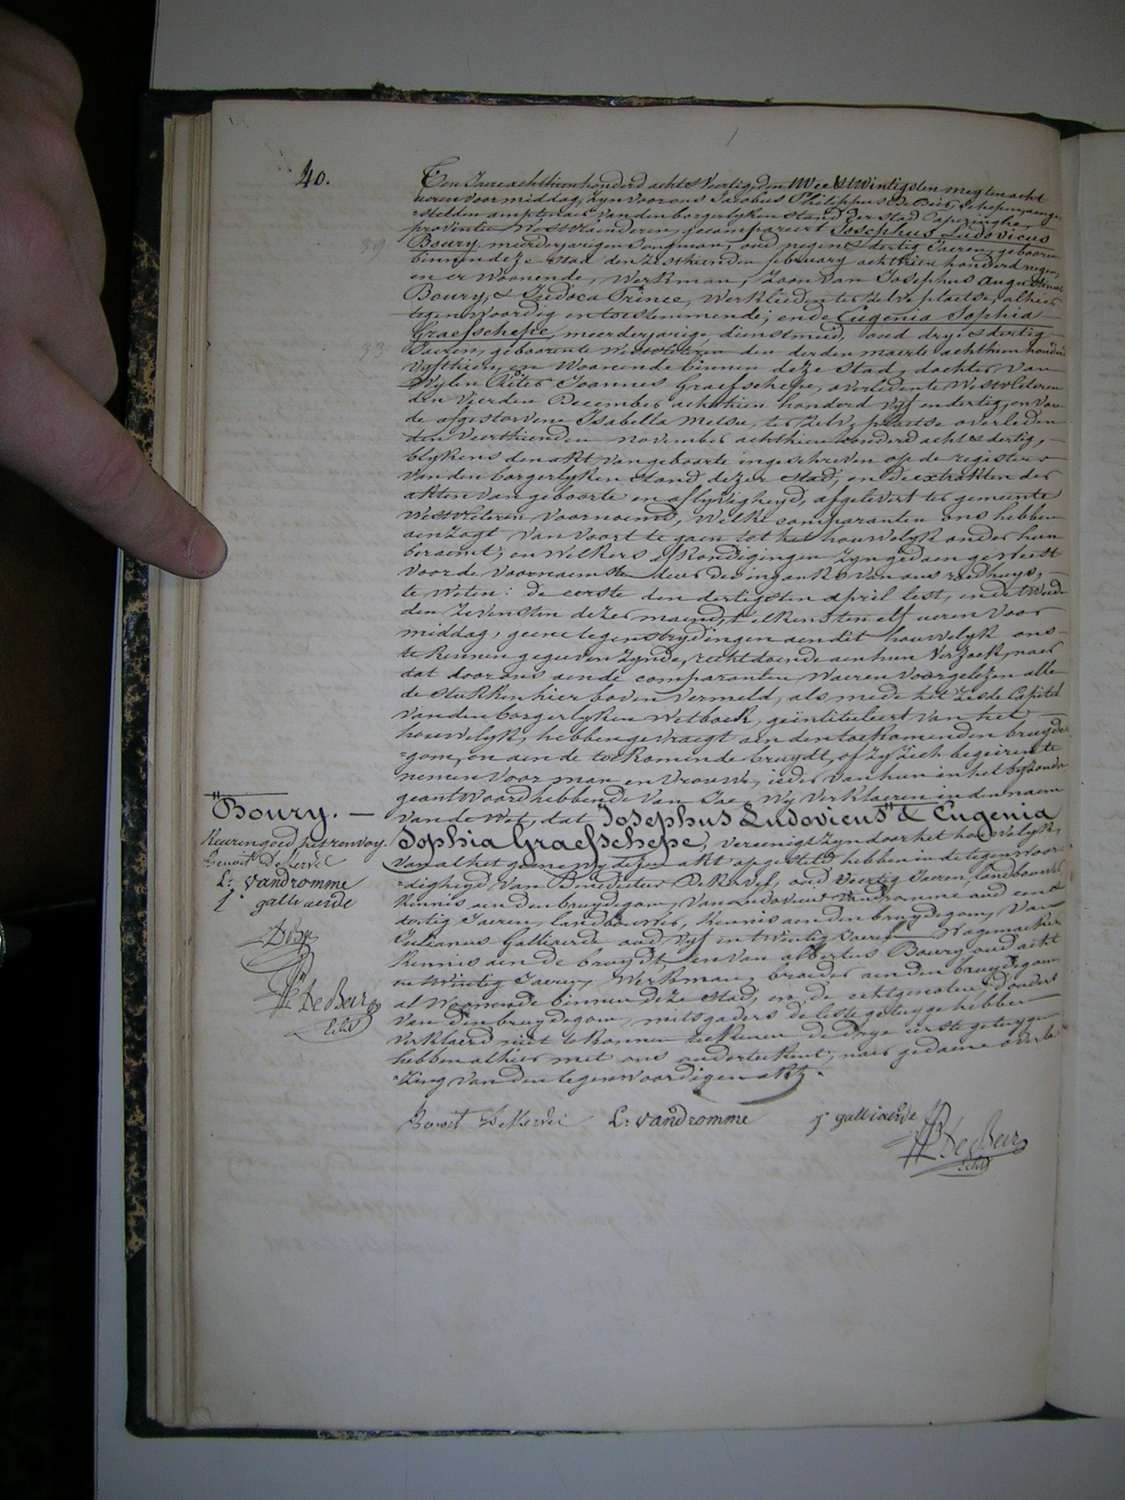 40.
Ten Jaere achthien honderd acht & veertig, den twee & twintigsten mey ten acht
ueren voormiddag, zyn voor ons Jacobus Philippus De Beir, schepen aenge-
stelden amptenaer van den borgerlyken stand der stad Poperinghe,
provintie Westvlaenderen, gecompareert Josephus Ludovicus
Boury, meerderjarigen Jongman, oud negen & dertig Jaeren, geboren
binnen deze stad den zesthienden february achthien honderd negen,
en er woonende, werkman, zoon van Josephus Augustinus
Boury, & Judoca Prince, werklieden ter zelve plaetse, alhier
tegenwoordig en toestemmende; ende Eugenia Sophia
Graefschepe, meerderjarige, dienstmeid, oud dry & dertig
Jaeren, geboren te Westvleteren den derden maerte achthien honderd
vyfthien, en woonende binnen deze stad, dochter van
wylen Pieter Joannes Graefschepe, overleden te Westvleteren
den vierden December achthien honderd vyf en dertig, en van
de afgestorvene Isabella Melsu, ter zelve plaetse overleden
den veerthienden november achthien honderd acht & dertig,
blykens den akt van geboorte ingeschreven op de registers
van den borgerlyken stand dezer stad, en de extrakten der
akten van geboorte en aflyvigheyd, afgelevert ter gemeente
Westvleteren voornoemd, welke comparanten ons hebben
aenzogt van voort te gaen tot het houwelyk onder hun
beraemt, en welkers afkondigingen zyn gedaen geweest
voor de voornaemste deur der ingank van ons raedhuys,
te weten: de eerste den dertigsten april lest, en de tweede
den zevensten dezer maend, telkensten elf ueren voor
middag, geene tegenstrydingen aen dit houwelyk ons
te kennen gegeven zynde, recht doende aen hun verzoek, naer
dat door ons aen de comparanten waeren voorgelezen alle
de stukken hier boven vermeld, als mede het zesde Capitel
van den borgerlyken Wetboek, geïntituleert van het
houwelyk, hebben gevraegt aen den toekomenden bruyde-
gom, en aen de toekomende bruydt, of zy zich begeiren te
nemen voor man en vrouwe, ieder van hun in het byzonder
geantwoord hebbende van Jae, wy verklaeren in den naem
van de Wet, dat Josephus Ludovicus Boury & Eugenia
Sophia Graefschepe, vereenigt zyn door het houwelyk,
van al het geene wy dezen akt opgesteld hebben in de tegenwoor-
digheyd van Benedictus De Kervel, oud veertig Jaeren, landbouwer,
kennis aen den bruydegom, van Ludovicus Vandromme oud een &
dertig Jaeren, landbouwer, kennis aen den bruydegom, van
Julianus Galliaerde oud vyf en twintig Jaeren Wagemaeker
kennis aen de bruydt, en van albertus Boury oud acht
en twintig Jaeren, werkman, broeder aen den bruydegom
al woonende binnen deze stad, en de echtgenoten, & ouders
van den bruydegom, mitsgaders de leste getuyge hebben
verklaerd niet te konnen teekenen de drye eerste getuygen
hebben alhier met ons onderteekent, naer gedaene overle-
zing van den tegenwoordigen akt.
"Boury. —
Keuren goed dezen renvoy.
Benoit Dekervel
L: vandromme
J galliaerde
De Beir
L: vandromme
J galliaerde
De Beir